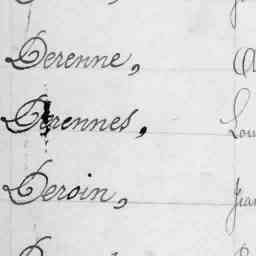 Derenne,
Derennes, Lou
Deroin, Jea